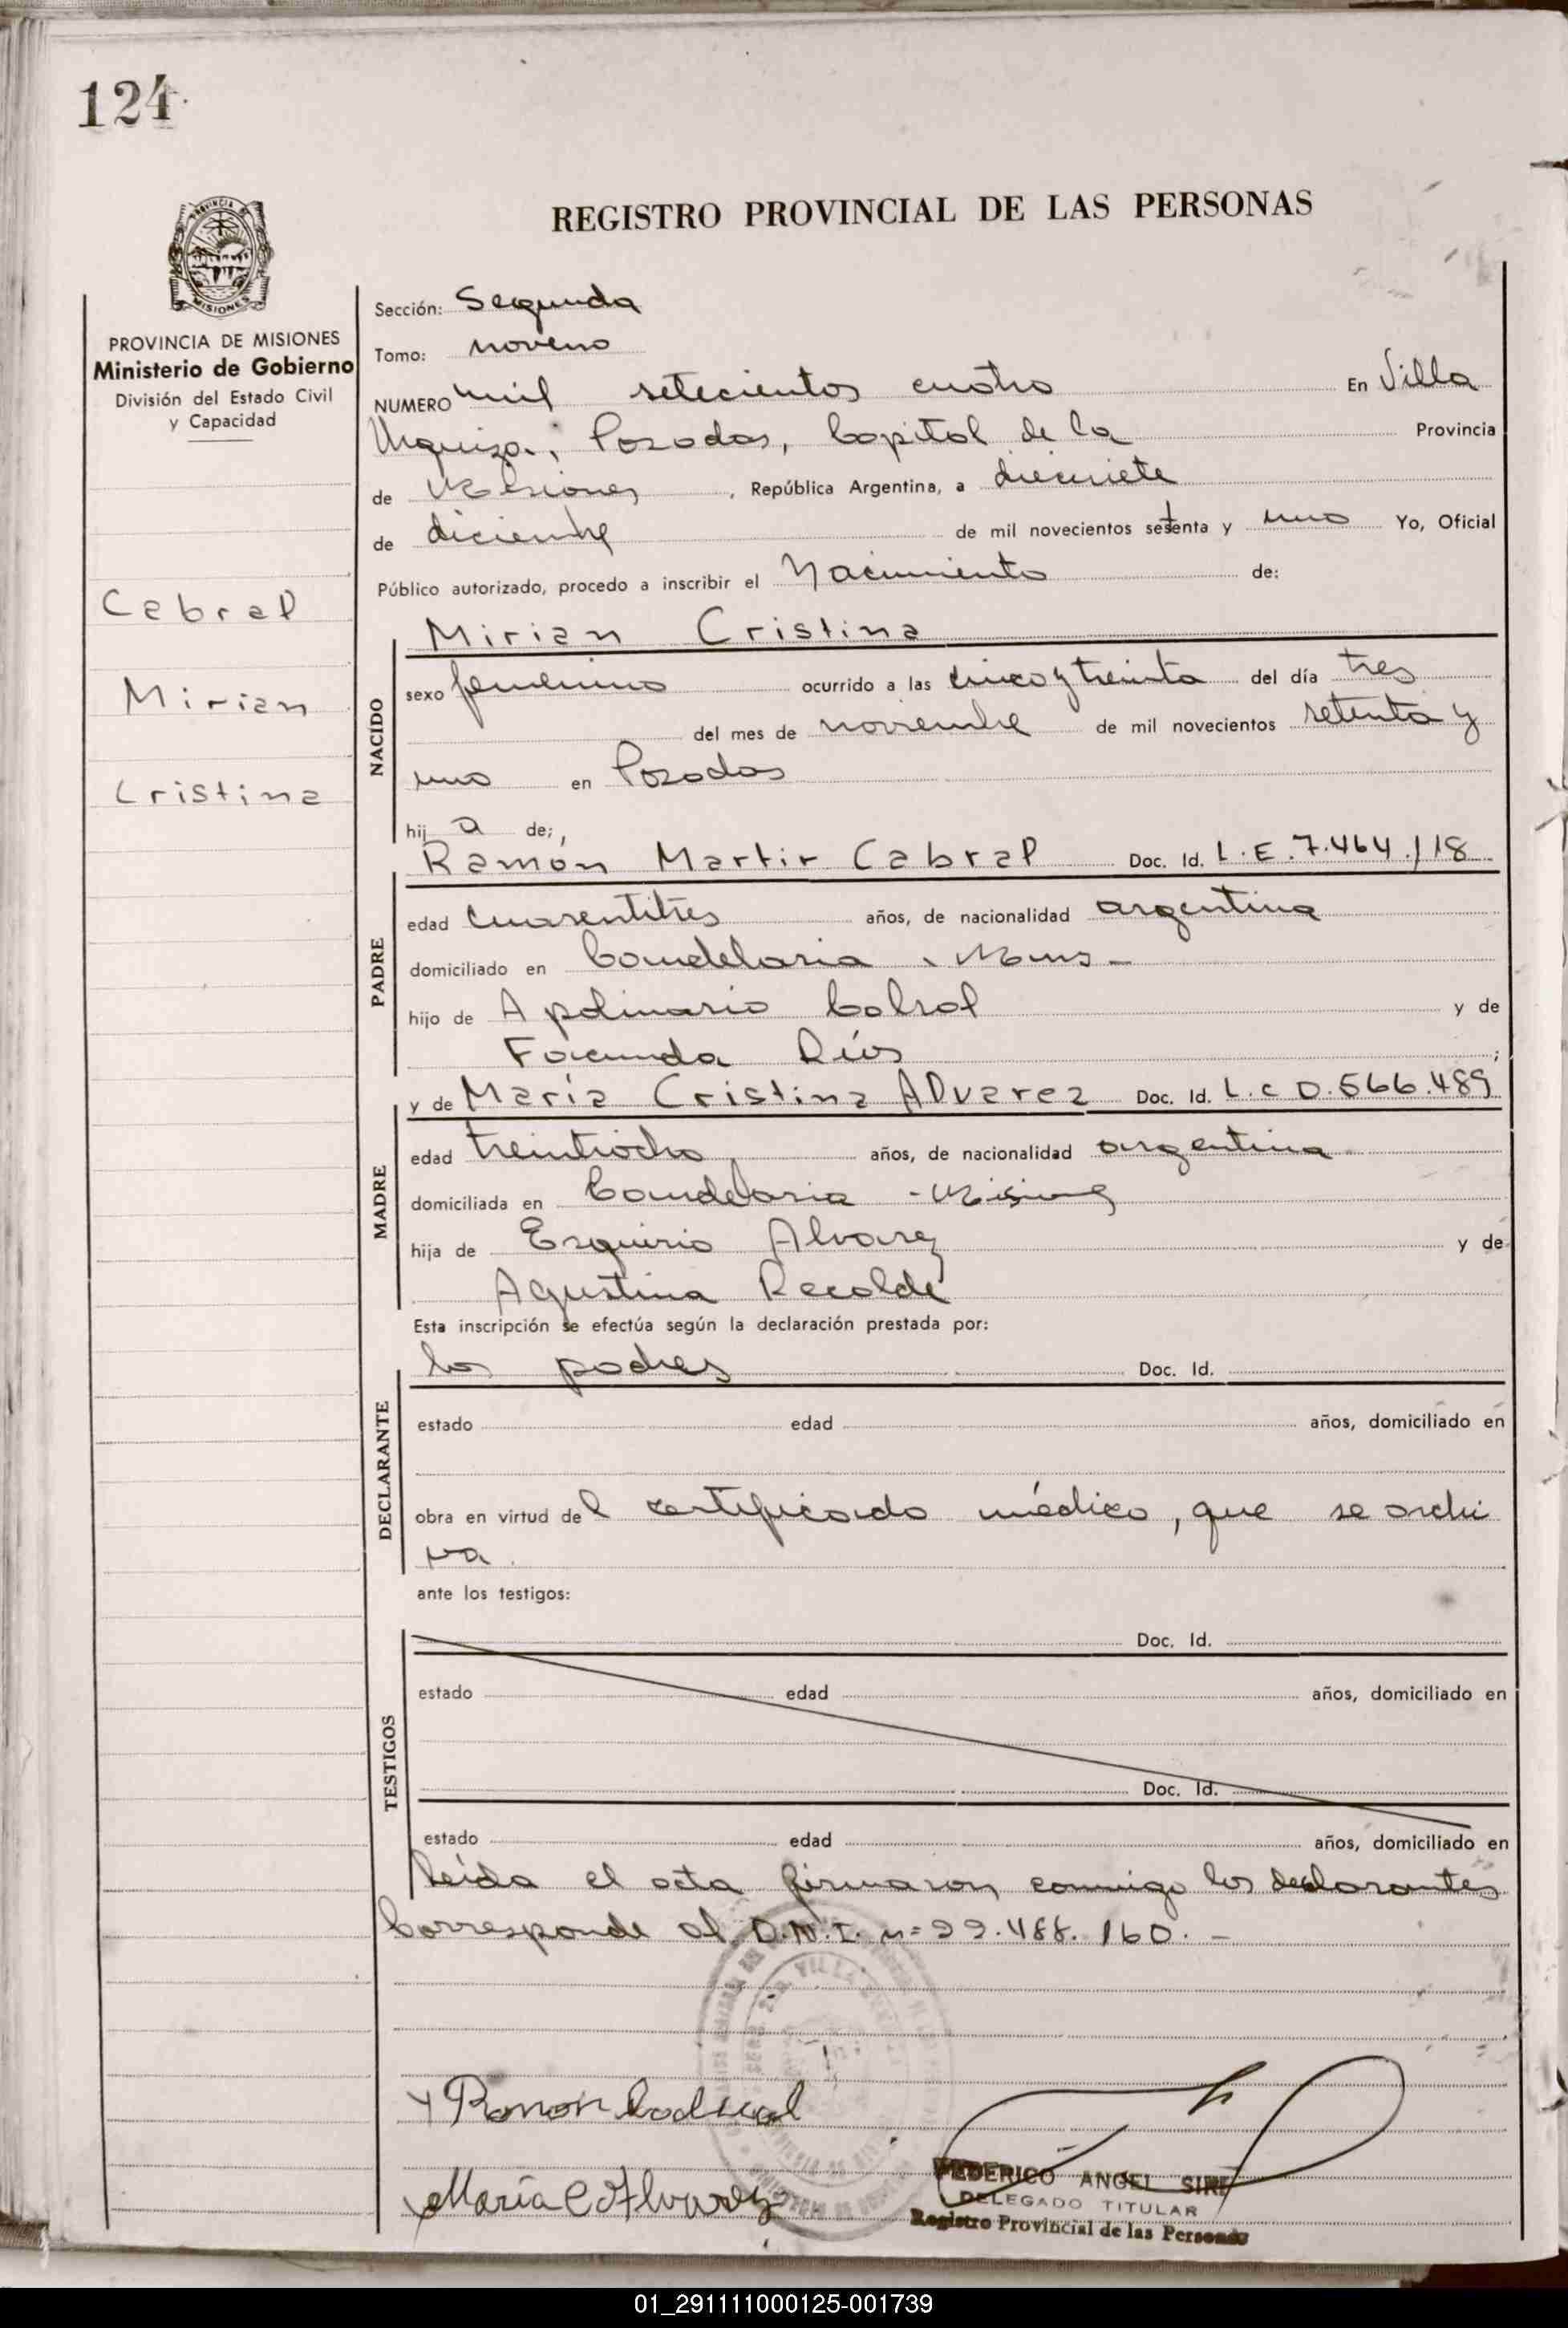 124
REGISTRO PROVINCIAL DE LAS PERSONAS
PROVINCIA DE MISIONES
Ministerio de Gobierno
División del Estado Civil
y Capacidad
Cabral
Mirian
Cristina
Sección: Segunda
Tomo: noveno
NUMERO mil setecientos cuatro En Villa
Urquiza, Posadas, Capital de la Provincia
de Misiones, República Argentina, a diecisiete
de diciembre de mil novecientos setenta y uno Yo, Oficial
Público autorizado, procedo a inscribir el Nacimiento de:
Mirian Cristina
NACIDO
sexo femenino ocurrido a las cinco y treinta del día tres
del mes de noviembre de mil novecientos setenta y
uno en Posadas
hij a de;,
Ramón Martir Cabral Doc. Id. L.E. 7.464.118
PADRE
edad cuarentitres años, de nacionalidad argentina
domiciliado en Candelaria
hijo de Apolinario Cabral y de
Facunda Ríos ;
y de María Cristina Alvarez Doc. Id. L.C 0.566.489
MADRE
edad treintiocho años, de nacionalidad argentina
domiciliada en Candelaria - Misiones
hija de Alvarez y de
Agustina Recalde
Esta inscripción se efectúa según la declaración prestada por:
los padres Doc. Id.
DECLARANTE
estado edad años, domiciliado en
obra en virtud del certificado médico, que se archi
va.
ante los testigos:
Doc. Id.
TESTIGOS
estado edad años, domiciliado en
Doc. Id.
estado edad años, domiciliado en
Leída el acta firmaron conmigo los declarantes
Corresponde al D.N.I. n= 22.488.160. -
Ramon Cabral
María C Alvarez
FEDERICO ANGEL SIRE
DELEGADO TITULAR
Registro Provincial de las Personas
01_291111000125-001739